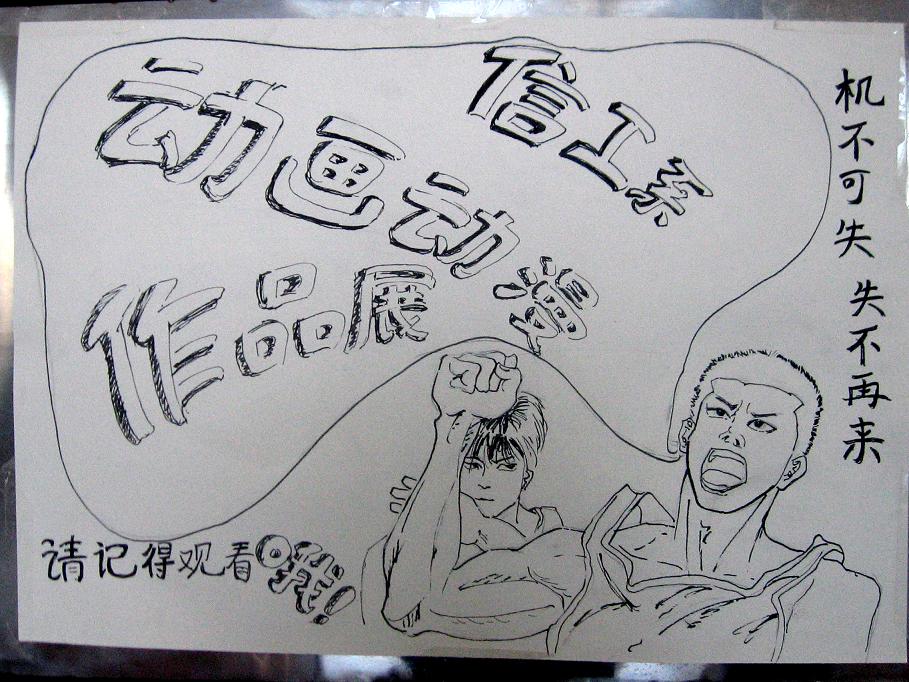 信工系
动画动漫
作品展
机不可失 失不再来
请记得观看哦!